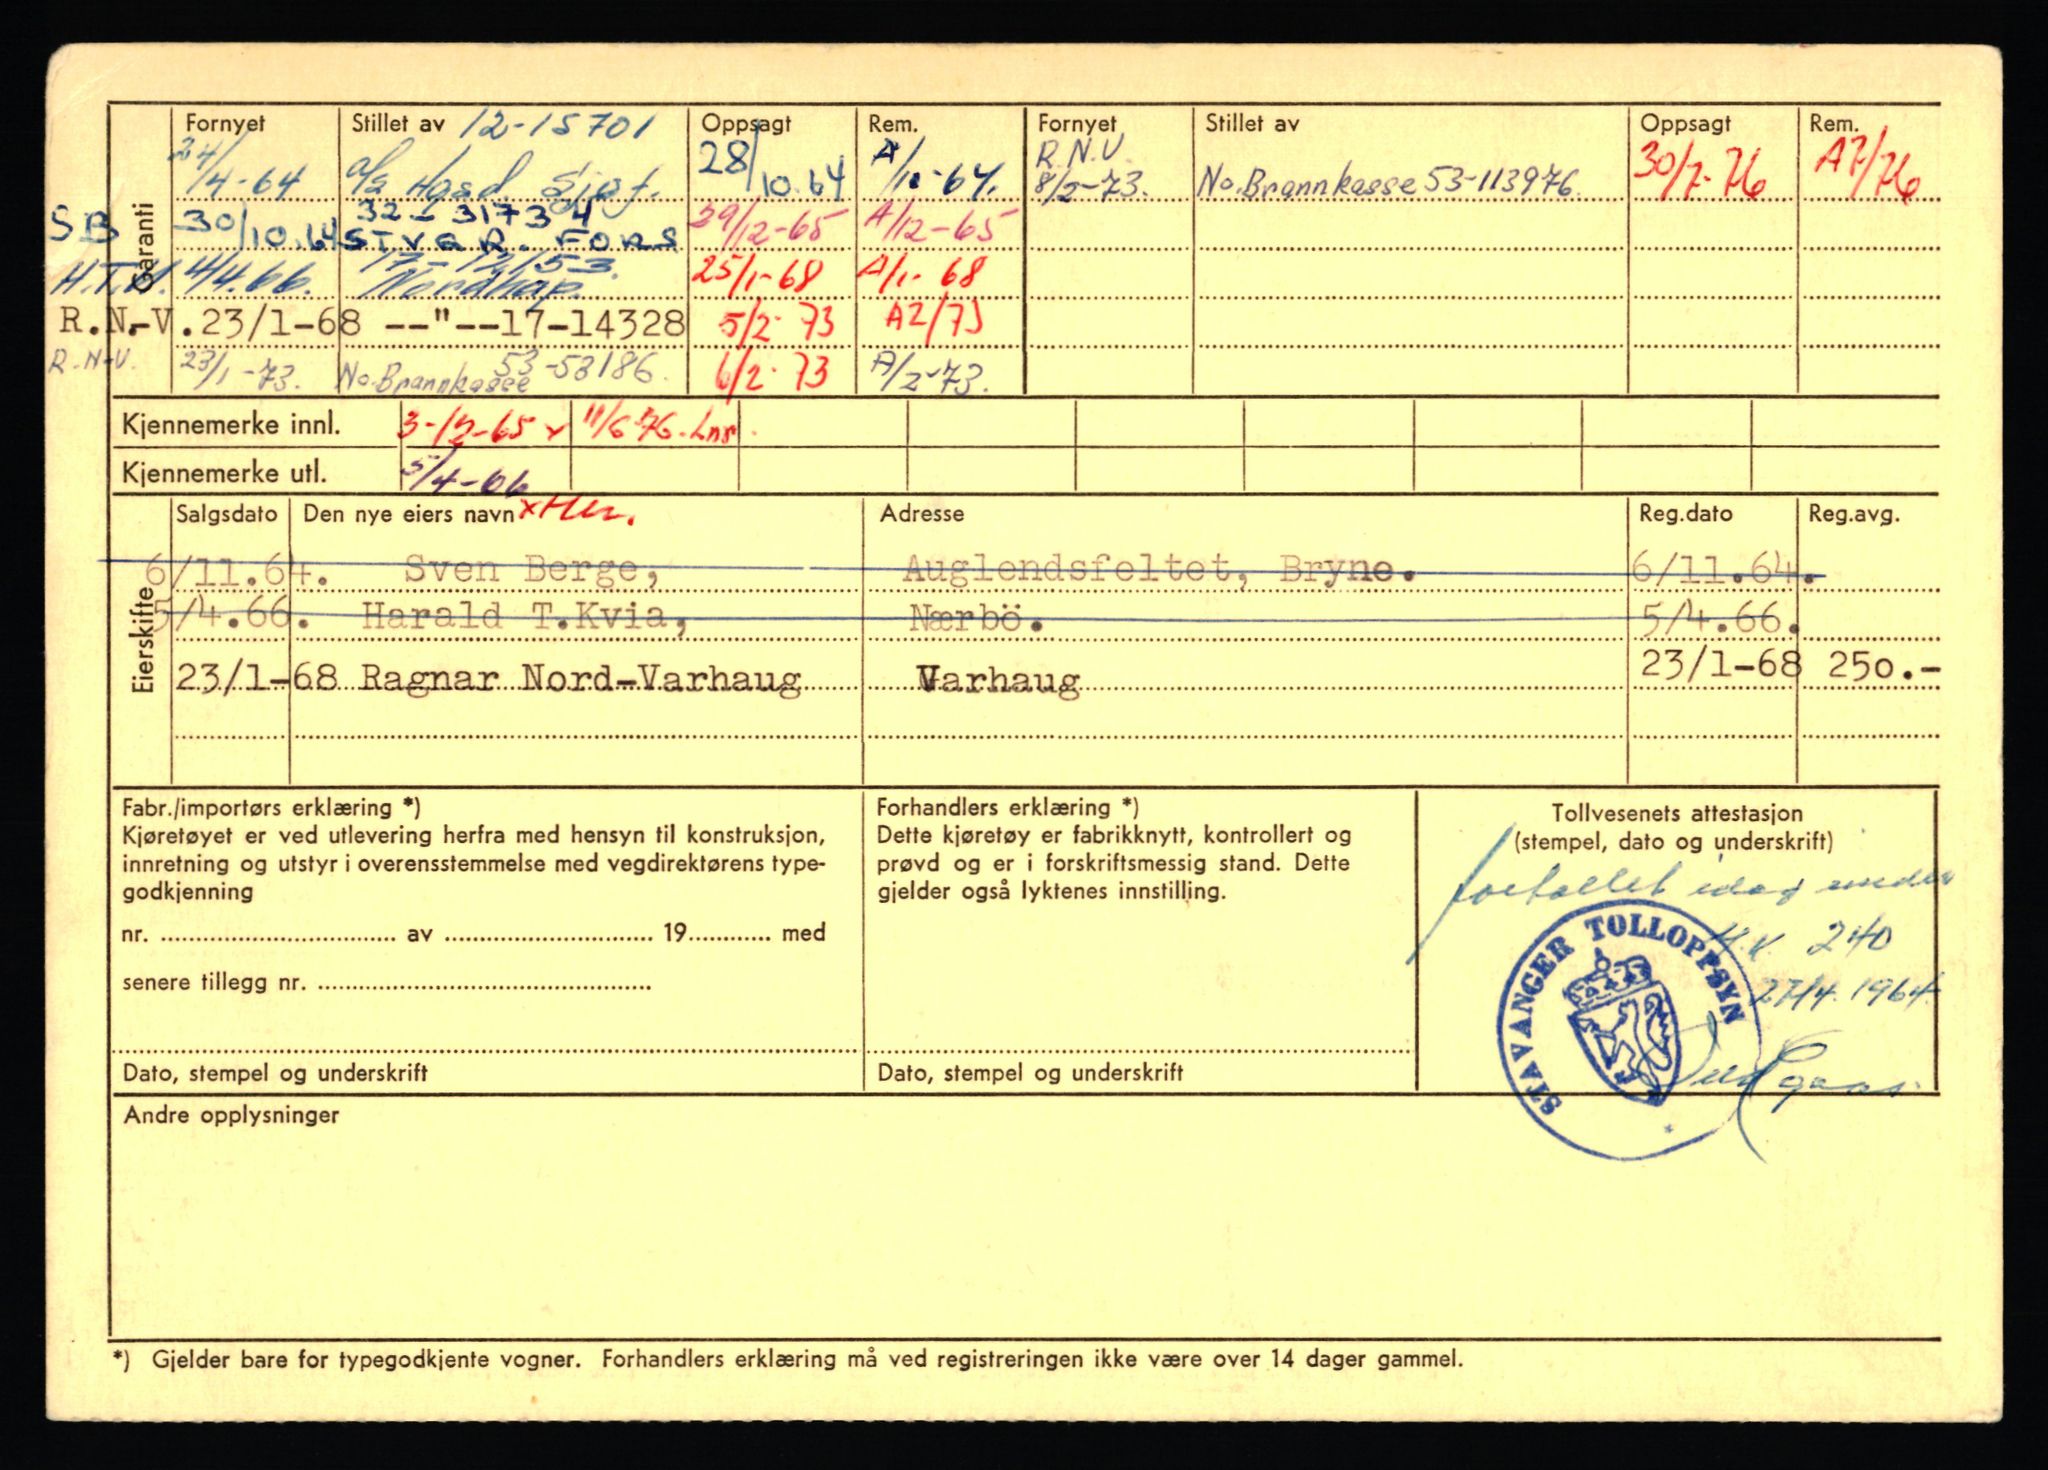 Garanti
Fornyet Stillet av 12-15701 Oppsagt Rem. Fornyet Stillet av Oppsagt Rem.
24/4-64 28/10.64 A/10-64. R.N.V. 8/2-73. No.Brannkasse 53-113976. 30/7-76 A7/76
SB 30/10.64 32-31734 STVGR. FORS 29/12-65 A/12-65
H.T.K. 4/4.66. 17-12153. Nordkap. 25/1-68 A/1-68
R.N.-V. 23/1-68 --"--17-14328 5/2-73 A2/73
R.N-V. 23/1-73. No.Brannkasse 53-53186. 6/2-73 A/2-73.
Kjennemerke innl. 3-12-65 x 11/6 76. Lns.
Kjennemerke utl. 5/4-66
Eierskifte
Salgsdato Den nye eiers navn Adresse Reg.dato Reg.avg.
6/11.64. Sven Berge, Auglendsfeltet, Bryne. 6/11.64.
5/4.66. Harald T.Kvia, Nærbö. 5/4.66.
23/1-68 Ragnar Nord-Varhaug Varhaug 23/1-68 250.-
Fabr./importørs erklæring *)
Kjøretøyet er ved utlevering herfra med hensyn til konstruksjon,
innretning og utstyr i overensstemmelse med vegdirektørens type-
godkjenning
nr. ........ av ........ 19........ med
senere tillegg nr. ........
Dato, stempel og underskrift
Forhandlers erklæring *)
Dette kjøretøy er fabrikknytt, kontrollert og
prøvd og er i forskriftsmessig stand. Dette
gjelder også lyktenes innstilling.
Dato, stempel og underskrift
Tollvesenets attestasjon
(stempel, dato og underskrift)
fortollet idag under
H.K. 240
27/4.1964.
STAVANGER TOLLOPPSYN
Andre opplysninger
*) Gjelder bare for typegodkjente vogner. Forhandlers erklæring må ved registreringen ikke være over 14 dager gammel.